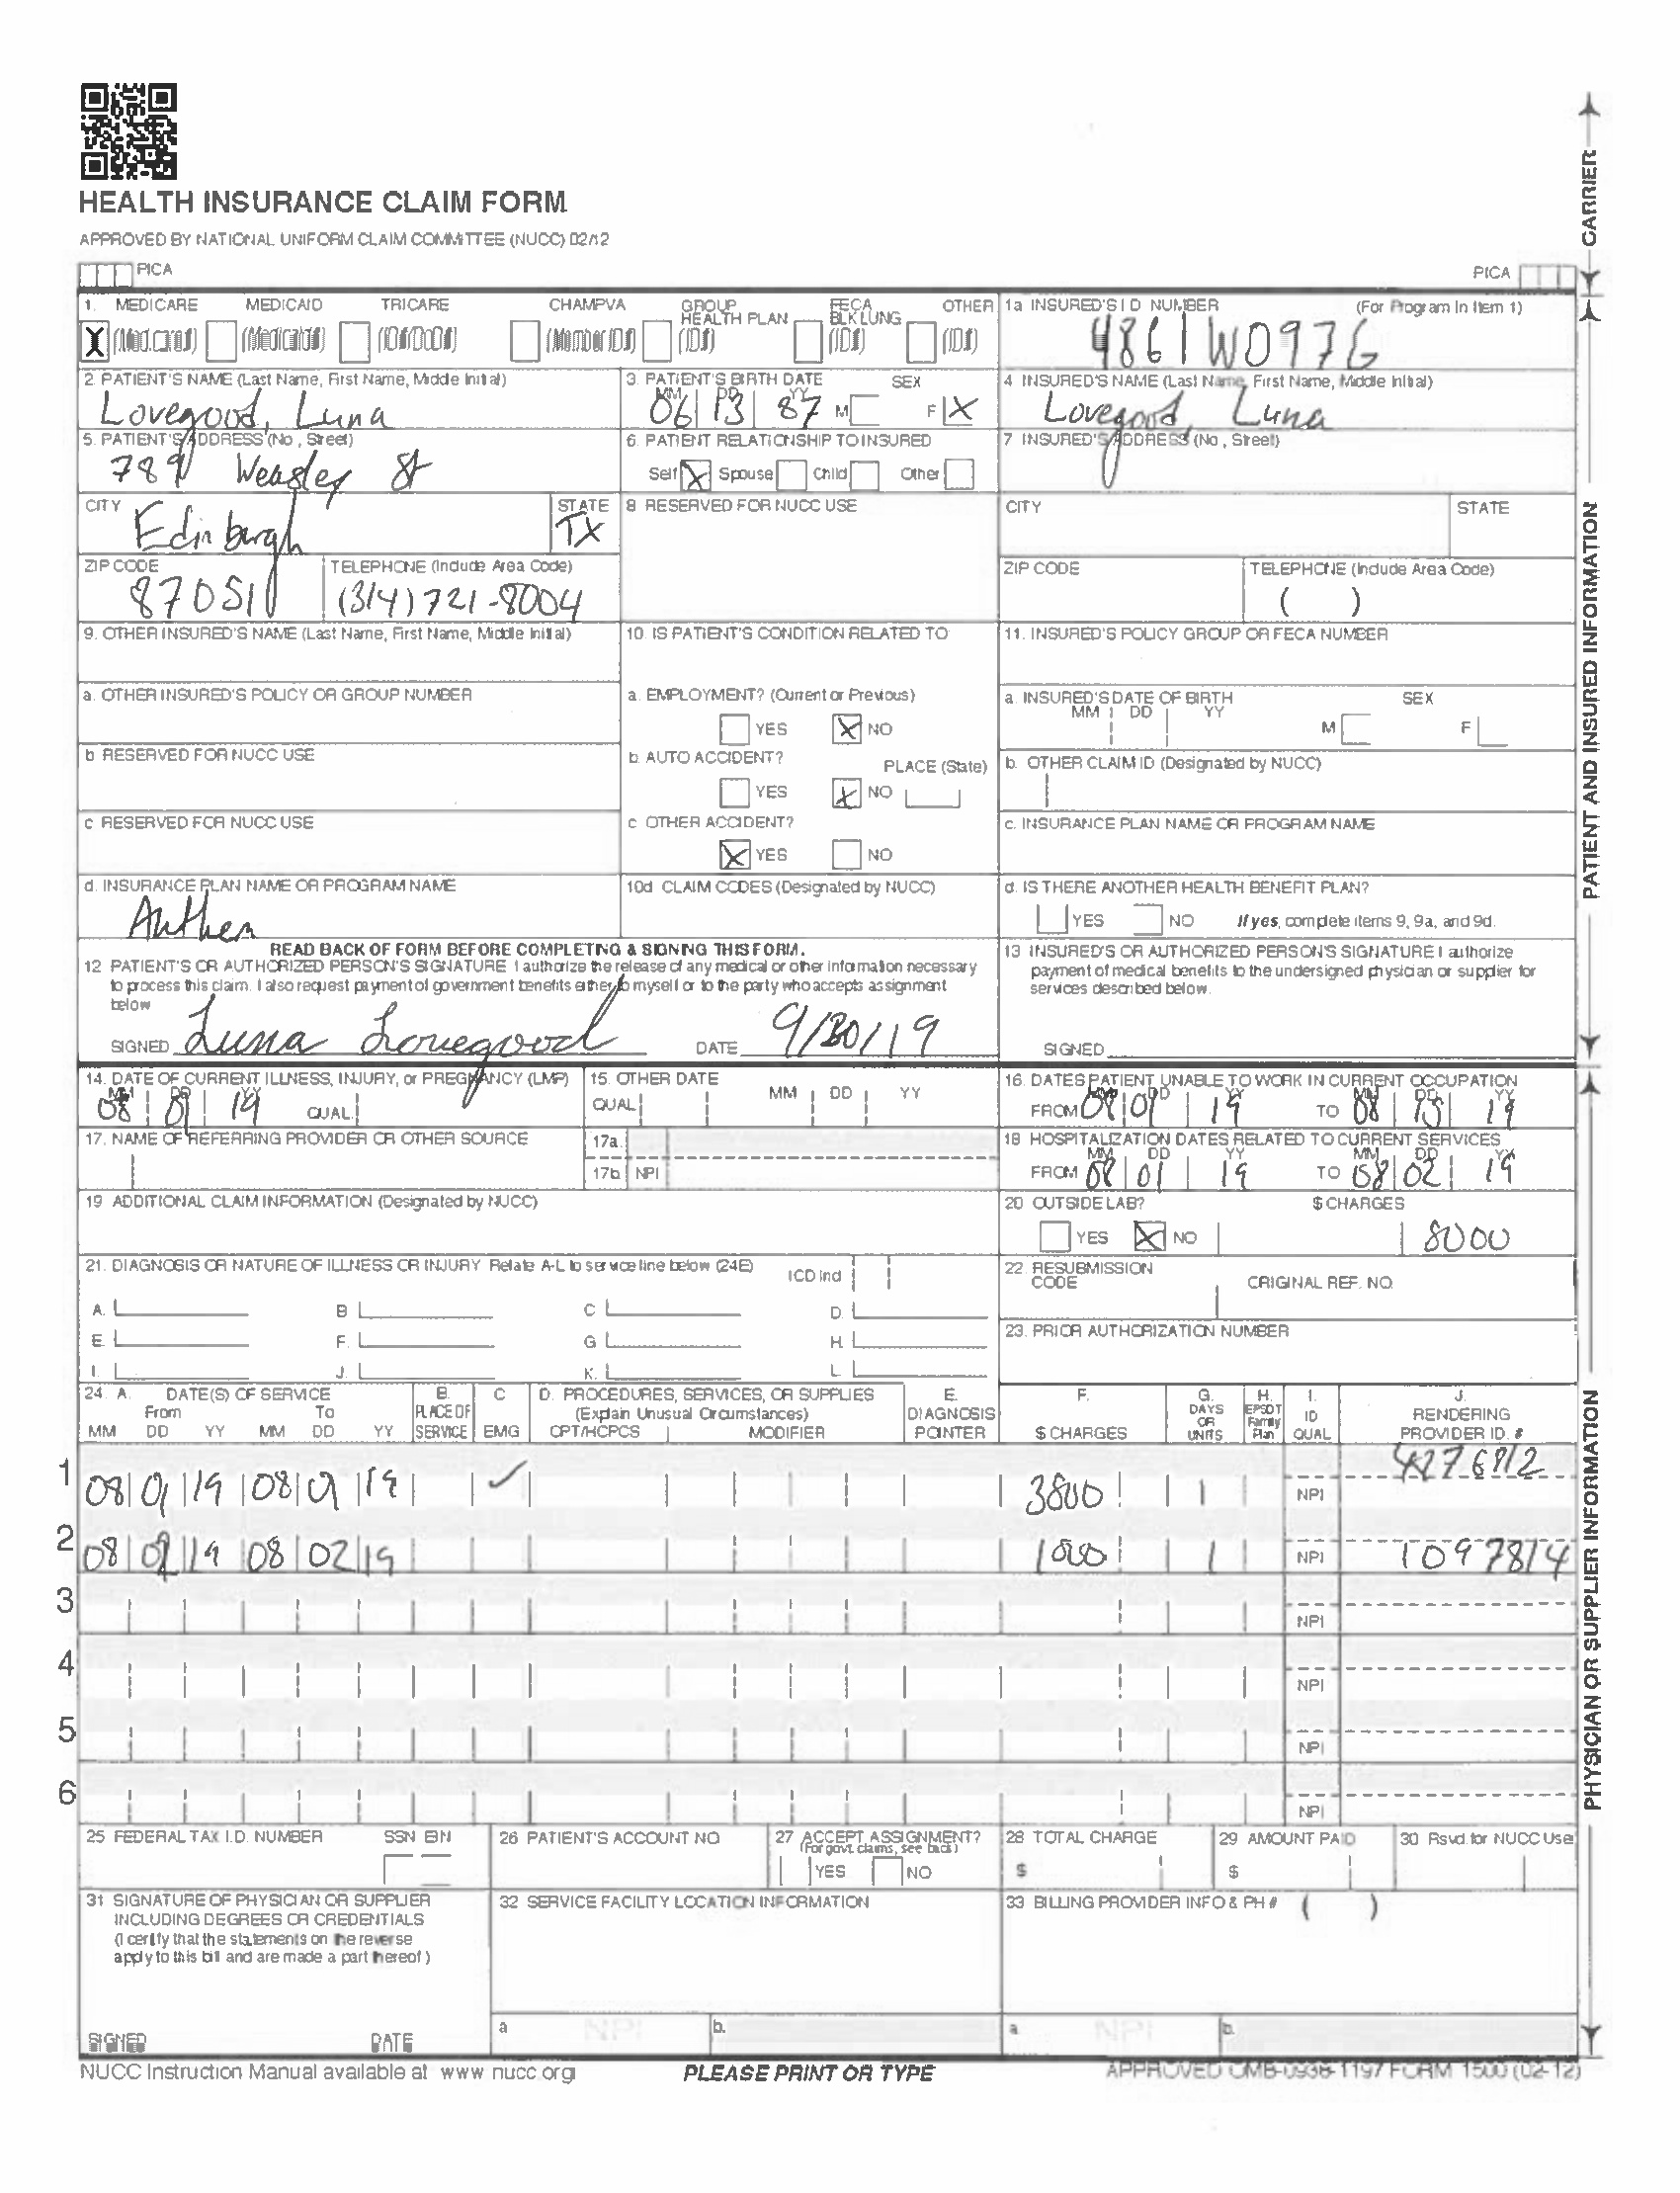 HEALTH INSURANCE CLAIM FORM
APPROVED BY NATIONAL UNIFORM CLAIM COMMITTEE (NUCC) 02/12
PICA PICA
CARRIER
1. MEDICARE MEDICAID TRICARE CHAMPVA GROUP HEALTH PLAN FECA BLK LUNG OTHER
X (Medicare#) (Medicaid#) (ID#/DOD#) (Member ID#) (ID#) (ID#) (ID#)
1a INSURED'S I D NUMBER (For Program In Item 1)
4861W097G
2. PATIENT'S NAME (Last Name, First Name, Middle Initial)
Lovegood, Luna
3. PATIENT'S BIRTH DATE SEX
MM DD YY
06 13 87 M F X
4 INSURED'S NAME (Last Name, First Name, Middle Initial)
Lovegood, Luna
5. PATIENT'S ADDRESS (No , Street)
789 Weasley St
6. PATIENT RELATIONSHIP TO INSURED
Self X Spouse Child Other
7 INSURED'S ADDRESS (No , Street)
CITY STATE
Edinburgh TX
8 RESERVED FOR NUCC USE
CITY STATE
ZIP CODE TELEPHONE (Include Area Code)
87051 (314) 721-8004
ZIP CODE TELEPHONE (Include Area Code)
( )
9. OTHER INSURED'S NAME (Last Name, First Name, Middle Initial)
10. IS PATIENT'S CONDITION RELATED TO
11. INSURED'S POLICY GROUP OR FECA NUMBER
a. OTHER INSURED'S POLICY OR GROUP NUMBER
a. EMPLOYMENT? (Current or Previous)
YES X NO
a. INSURED'S DATE OF BIRTH SEX
MM DD YY M F
b RESERVED FOR NUCC USE
b. AUTO ACCIDENT? PLACE (State)
YES X NO
b. OTHER CLAIM ID (Designated by NUCC)
c RESERVED FOR NUCC USE
c OTHER ACCIDENT?
X YES NO
c. INSURANCE PLAN NAME OR PROGRAM NAME
d. INSURANCE PLAN NAME OR PROGRAM NAME
Anthem
10d CLAIM CODES (Designated by NUCC)
d. IS THERE ANOTHER HEALTH BENEFIT PLAN?
YES NO If yes, complete items 9, 9a, and 9d.
READ BACK OF FORM BEFORE COMPLETING & SIGNING THIS FORM.
12 PATIENT'S OR AUTHORIZED PERSON'S SIGNATURE I authorize the release of any medical or other information necessary
to process this claim. I also request payment of government benefits either to myself or to the party who accepts assignment
below
SIGNED Luna Lovegood DATE 9/30/19
13 INSURED'S OR AUTHORIZED PERSON'S SIGNATURE I authorize
payment of medical benefits to the undersigned physician or supplier for
services described below.
SIGNED
PATIENT AND INSURED INFORMATION
14. DATE OF CURRENT ILLNESS, INJURY, or PREGNANCY (LMP)
MM DD YY
08 01 19 QUAL.
15. OTHER DATE MM DD YY
QUAL.
16. DATES PATIENT UNABLE TO WORK IN CURRENT OCCUPATION
MM DD YY MM DD YY
FROM 08 01 19 TO 08 15 19
17. NAME OF REFERRING PROVIDER OR OTHER SOURCE
17a.
17b NPI
18 HOSPITALIZATION DATES RELATED TO CURRENT SERVICES
MM DD YY MM DD YY
FROM 08 01 19 TO 08 02 19
19 ADDITIONAL CLAIM INFORMATION (Designated by NUCC)
20 OUTSIDE LAB? $ CHARGES
YES X NO 8000
21. DIAGNOSIS OR NATURE OF ILLNESS OR INJURY Relate A-L to service line below (24E) ICD Ind
A. B C D.
E. F. G H.
I. J. K. L.
22. RESUBMISSION CODE ORIGINAL REF. NO.
23. PRIOR AUTHORIZATION NUMBER
24. A. DATE(S) OF SERVICE B. C D. PROCEDURES, SERVICES, OR SUPPLIES E. F. G. H. I. J.
From To PLACE OF (Explain Unusual Circumstances) DIAGNOSIS DAYS OR EPSDT Family ID RENDERING
MM DD YY MM DD YY SERVICE EMG CPT/HCPCS MODIFIER POINTER $ CHARGES UNITS Plan QUAL. PROVIDER ID. #
4276812
1 08 01 19 08 01 19 ✓ 3800 1 NPI
2 08 02 19 08 02 19 1000 1 NPI 1097814
3 NPI
4 NPI
5 NPI
6 NPI
25 FEDERAL TAX I.D. NUMBER SSN EIN
26 PATIENT'S ACCOUNT NO
27 ACCEPT ASSIGNMENT?
(For govt. claims, see back)
YES NO
28 TOTAL CHARGE
$
29 AMOUNT PAID
$
30 Rsvd.for NUCC Use
31 SIGNATURE OF PHYSICIAN OR SUPPLIER
INCLUDING DEGREES OR CREDENTIALS
(I certify that the statements on the reverse
apply to this bill and are made a part thereof )
SIGNED DATE
32 SERVICE FACILITY LOCATION INFORMATION
a NPI b.
33 BILLING PROVIDER INFO & PH # ( )
a NPI b.
PHYSICIAN OR SUPPLIER INFORMATION
NUCC Instruction Manual available at www nucc.org
PLEASE PRINT OR TYPE
APPROVED OMB-0938-1197 FORM 1500 (02-12)